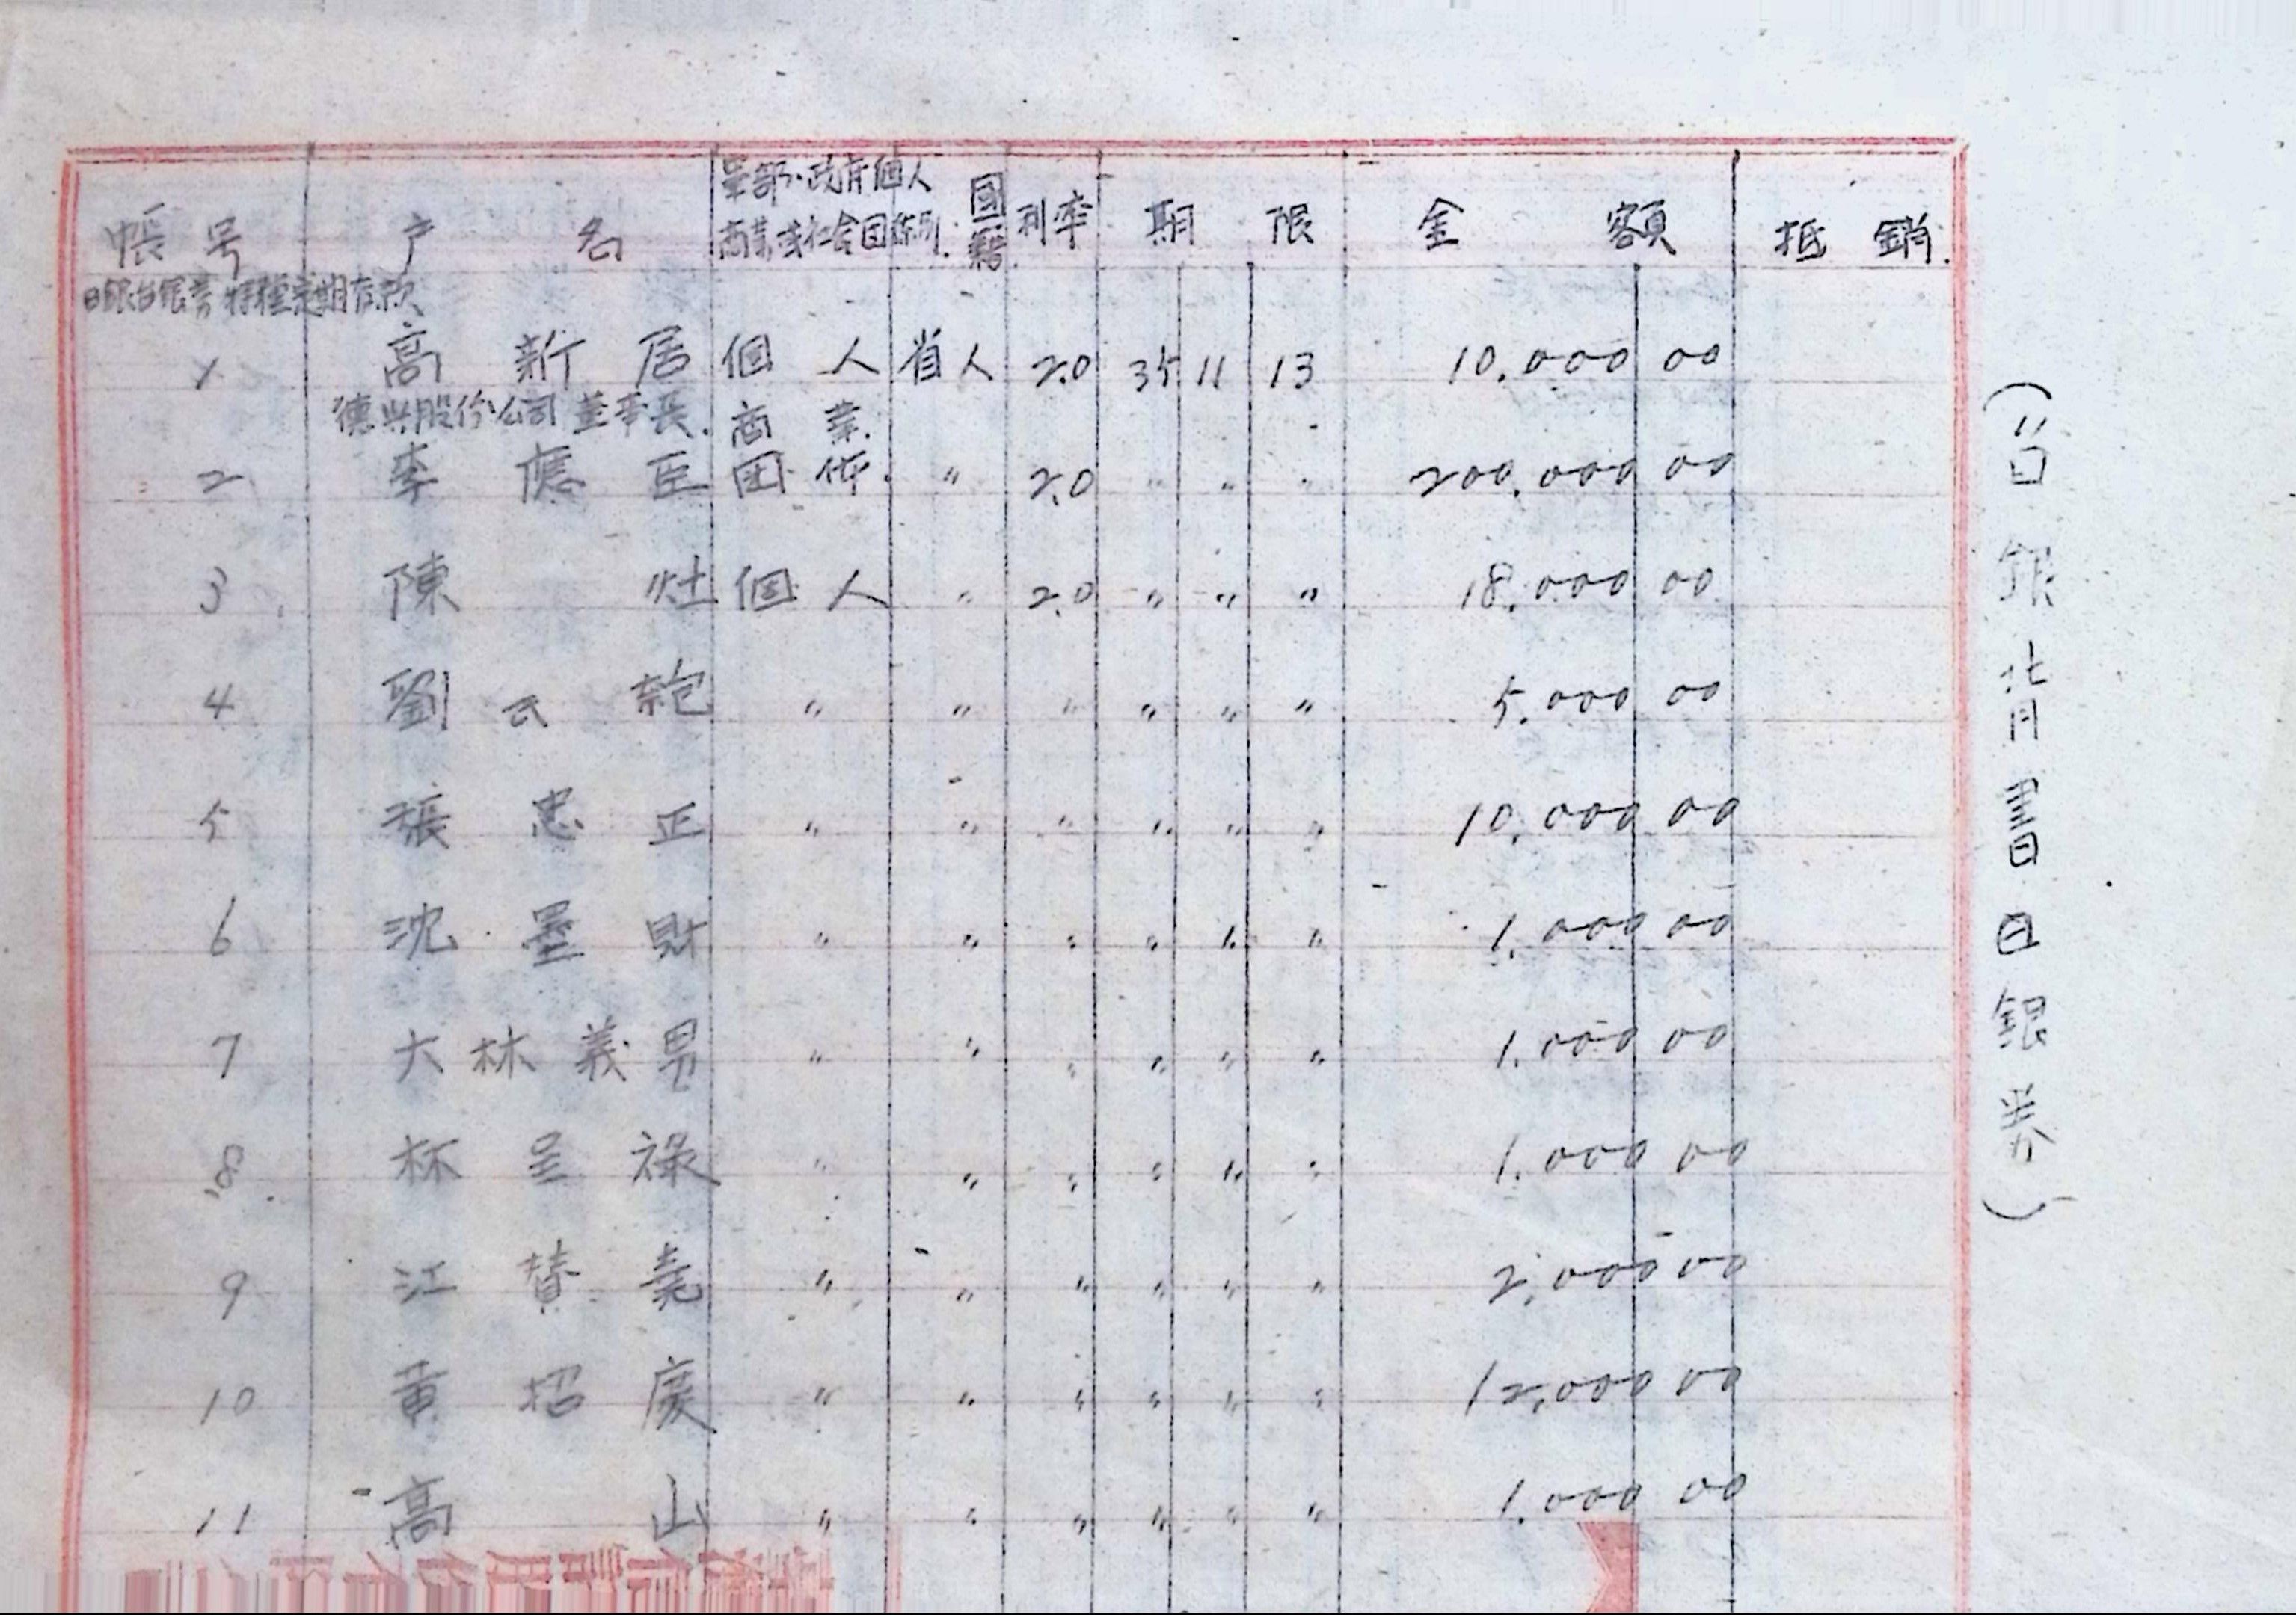 帳号 户名 軍部·政府個人 商業或社会団体別 国籍 利率 期限 金額 抵銷
日銀台銀背書特種定期存款
1 高新居 個人 省人 2.0 35 11 13 10.000 00
德興股份公司董事長 商業
2 李應臣 団体 〃 2.0 〃 〃 〃 200.000 00
3 陳灶 個人 〃 2.0 〃 〃 〃 18.000 00
4 劉氏 〃 〃 〃 〃 〃 〃 5.000 00
5 張忠正 〃 〃 〃 〃 〃 〃 10.000 00
6 沈墨財 〃 〃 〃 〃 〃 〃 1.000 00
7 大林義男 〃 〃 〃 〃 〃 〃 1.000 00
8 林呈祿 〃 〃 〃 〃 〃 〃 1.000 00
9 江賛堯 〃 〃 〃 〃 〃 〃 2,000 00
10 黄招慶 〃 〃 〃 〃 〃 〃 12,000 00
11 高山 〃 〃 〃 〃 〃 〃 1.000 00
(台銀背書日銀券)